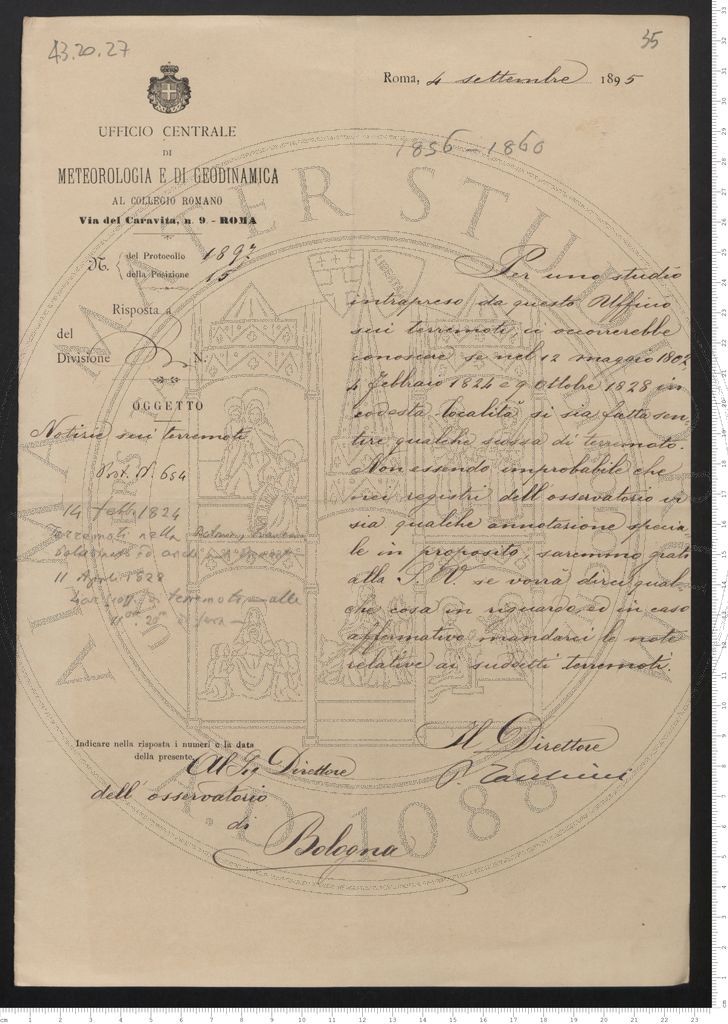 43.20.27
35
Roma, 4 settembre 1895
1856-1860
UFFICIO CENTRALE
DI
METEOROLOGIA E DI GEODINAMICA
AL COLLEGIO ROMANO
Via del Caravita, n. 9 - ROMA
N. del Protocollo 1897
della Posizione 15
Risposta a
del
Divisione N.
OGGETTO
Notizie sui terremoti
Prot. N. 654
14 febb. 1824
terremoti nella
11 Aprile 1828
terremoto alle
Per uno studio
intrapreso da questo Ufficio
sui terremoti ci occorrerebbe
conoscere se nel 12 maggio 1802
4 febbraio 1824 e 9 ottobre 1828 in
codesta località si sia fatta sen-
tire qualche scossa di terremoto.
Non essendo improbabile che
nei registri dell'osservatorio vi
sia qualche annotazione specia-
le in proposito, saremmo grati
alla S. V. se vorrà dirci qual-
che cosa in riguardo, ed in caso
affermativo mandarci le note
relative ai suddetti terremoti.
Il Direttore
P. Tacchini
Indicare nella risposta i numeri e la data
della presente.
Al Sig Direttore
dell'osservatorio
di
Bologna
ALMA MATER STUDIORUM
A.D. 1088